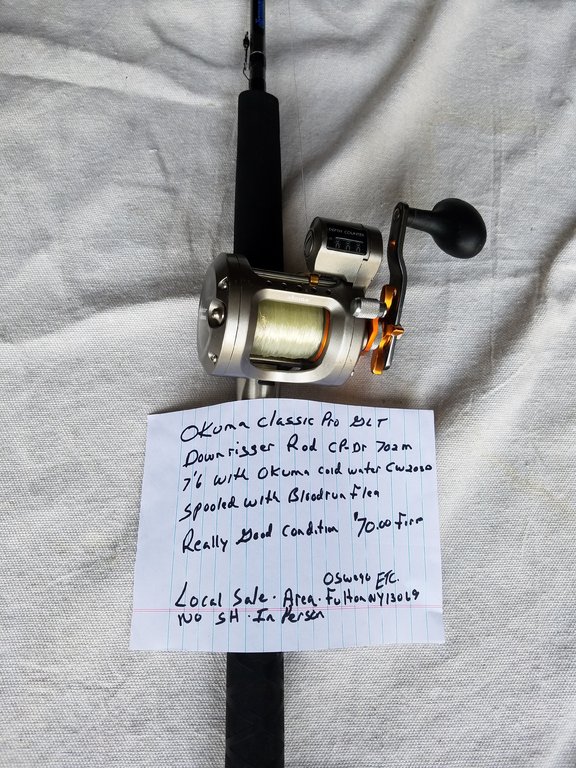 DEPTH COUNTER
okuma
OKuma Classic Pro GLT
Downrigger Rod CP-Dr 702m
7'6 with OKuma Cold water CW203D
Spooled with Bloodrun Flea
Really Good Condition $70.00 Firm
Oswego ETC.
Local Sale. Area. Fulton NY 13069
No SH. In Person